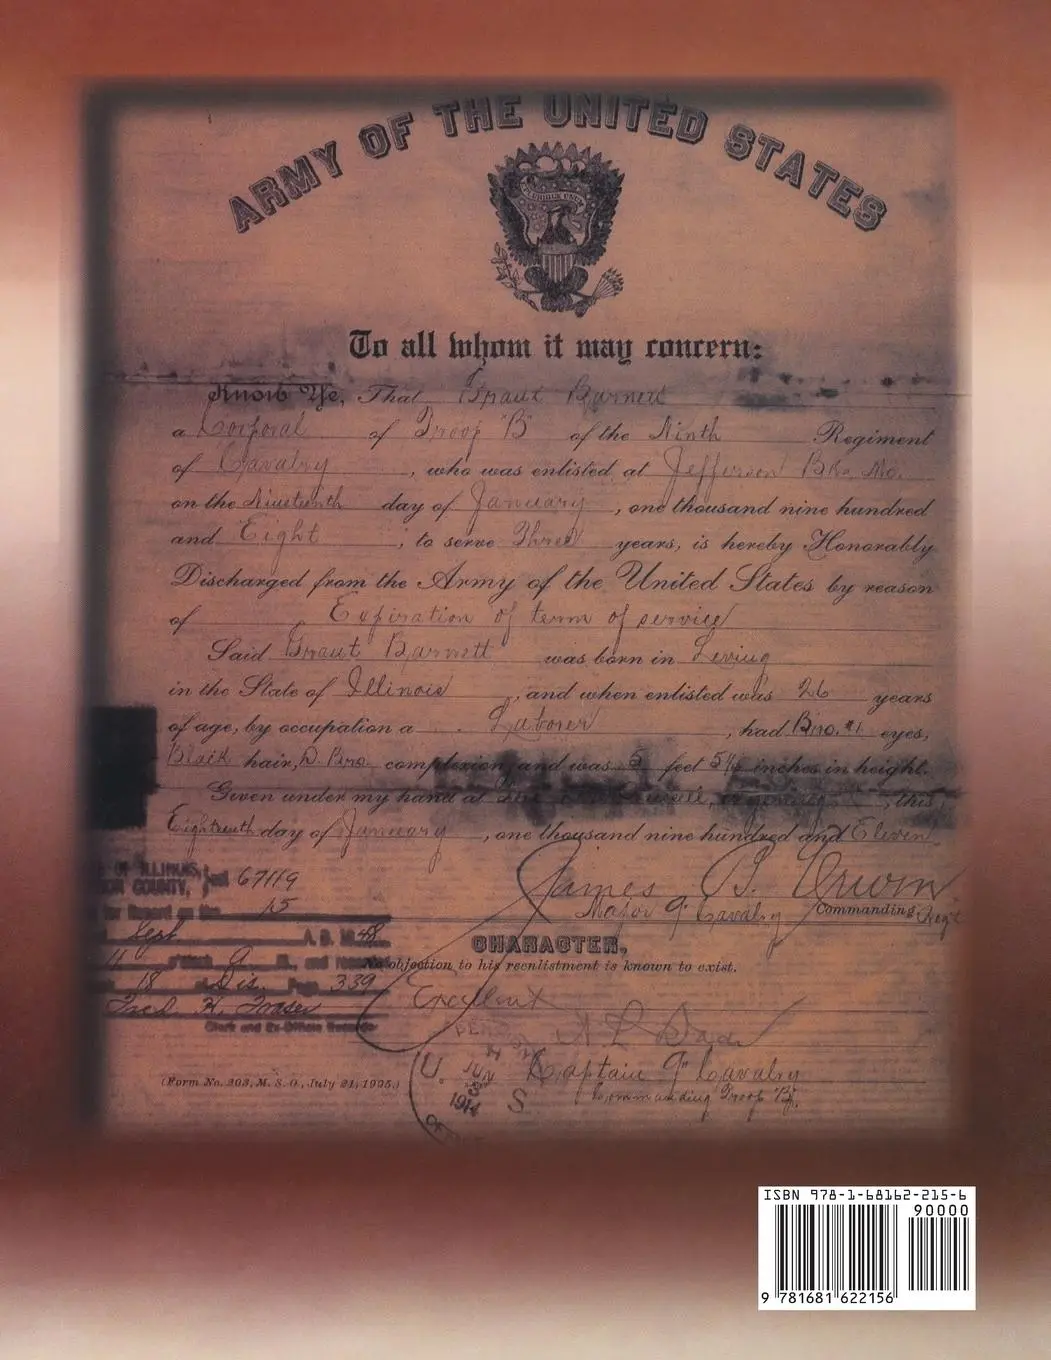 ARMY OF THE UNITED STATES
To all whom it may concern:
Know Ye, That Grant Barnett
a Corporal of Troop "B" of the Ninth Regiment
of Cavalry, who was enlisted at Jefferson Bks. Mo.
on the Nineteenth day of January, one thousand nine hundred
and Eight, to serve Three years, is hereby Honorably
Discharged from the Army of the United States by reason
of Expiration of term of service
Said Grant Barnett was born in
in the State of Illinois, and when enlisted was 26 years
of age, by occupation a Laborer, had Bro. #1 eyes,
Black hair, D. Bro. complexion, and was 5 feet inches in height.
Given under my hand at this
Eighteenth day of January, one thousand nine hundred and Eleven
OF ILLINOIS,
COUNTY, 67119
for Record on the 15
Sept A. D. 19
A M., and
18 Dis. Page 339
Fred H. Fraser
Clerk and Ex-Officio Recorder
James B. Erwin
Major 9" Cavalry Commanding Reg't
CHARACTER,
No objection to his reenlistment is known to exist.
Excellent
Captain 9" Cavalry
Commanding Troop "B".
U. S
JUN
1914
(Form No. 203, M. S. O., July 21, 1905.)
ISBN 978-1-68162-215-6
90000
9 781681 622156